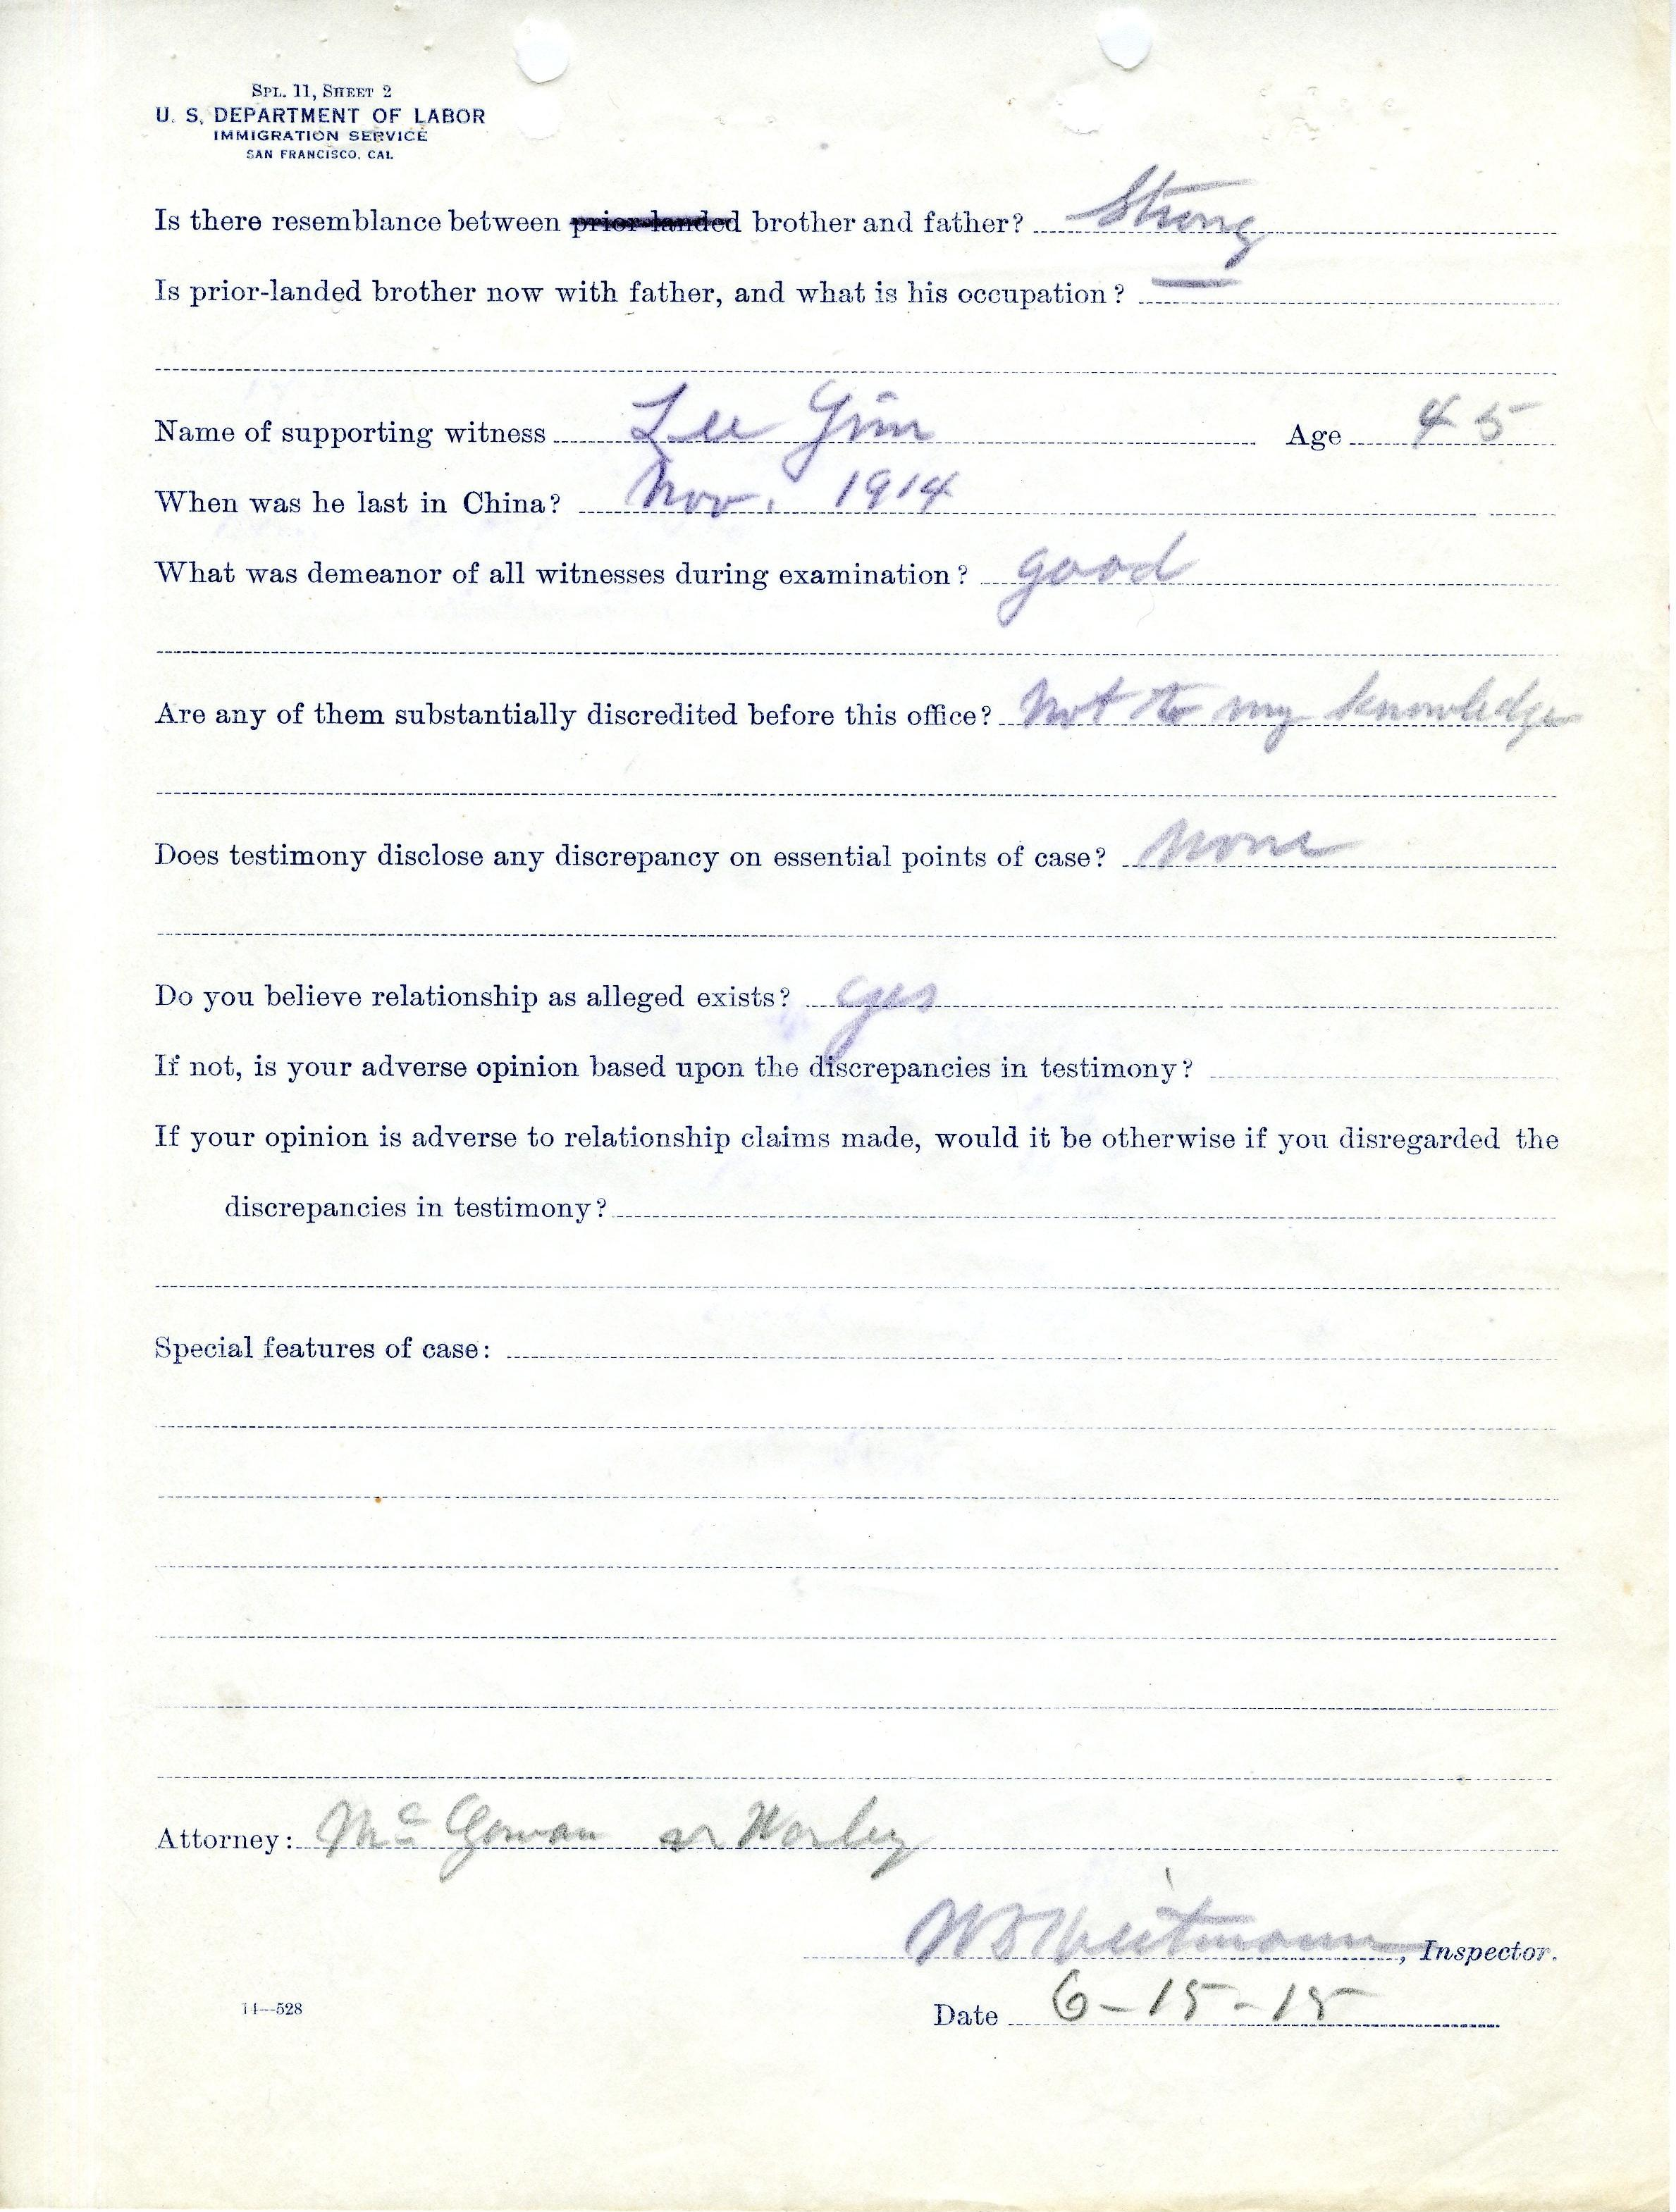 SPL. 11, SHEET 2
U. S. DEPARTMENT OF LABOR
IMMIGRATION SERVICE
SAN FRANCISCO, CAL.
Is there resemblance between prior-landed brother and father? Strong
Is prior-landed brother now with father, and what is his occupation? —
Name of supporting witness Lee Gim Age 45
When was he last in China? Nov. 1914
What was demeanor of all witnesses during examination? good
Are any of them substantially discredited before this office? Not to my knowledge
Does testimony disclose any discrepancy on essential points of case? None
Do you believe relationship as alleged exists? yes
If not, is your adverse opinion based upon the discrepancies in testimony?
If your opinion is adverse to relationship claims made, would it be otherwise if you disregarded the
discrepancies in testimony?
Special features of case:
Attorney: McGowan & Worley
, Inspector.
14—528
Date 6-15-15